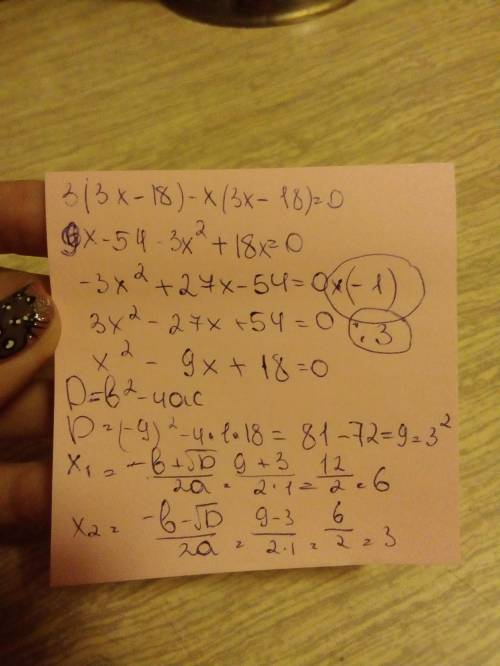 3(3x-18)-x(3x-18)=0
9x-54-3x²+18x=0
-3x²+27x-54=0 x(-1)
3x²-27x+54=0 :3
x²-9x+18=0
D=b²-4ac
D=(-9)²-4·1·18=81-72=9=3²
x₁=(-b+√D)/2a=(9+3)/2·1=12/2=6
x₂=(-b-√D)/2a=(9-3)/2·1=6/2=3